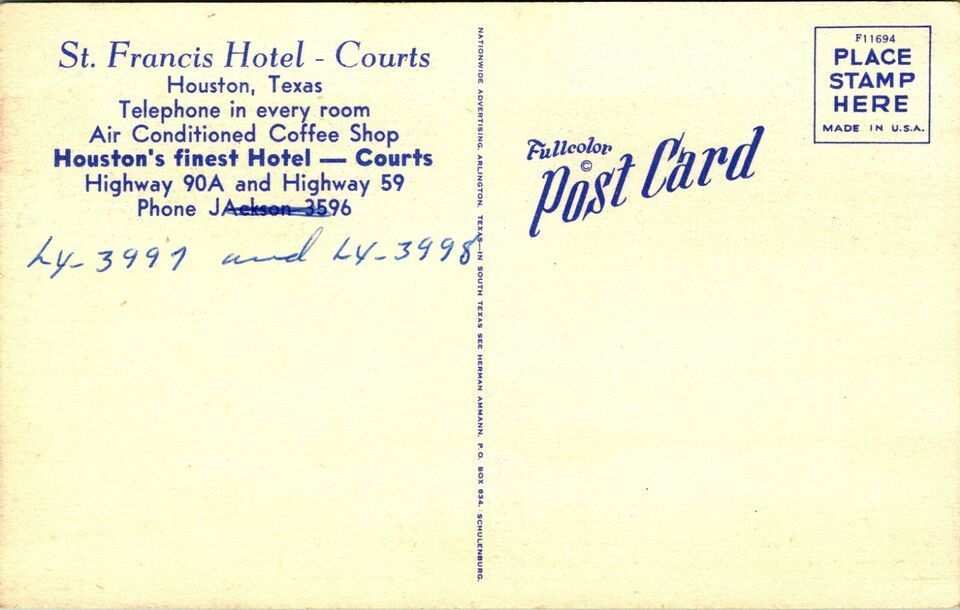 St. Francis Hotel - Courts
Houston, Texas
Telephone in every room
Air Conditioned Coffee Shop
Houston's finest Hotel — Courts
Highway 90A and Highway 59
Phone JAckson 3596
LY-3997 and LY-3998
NATIONWIDE ADVERTISING, ARLINGTON, TEXAS—IN SOUTH TEXAS SEE HERMAN AMMANN, P.O. BOX 634, SCHULENBURG.
Fullcolor
©
Post Card
F11694
PLACE
STAMP
HERE
MADE IN U.S.A.